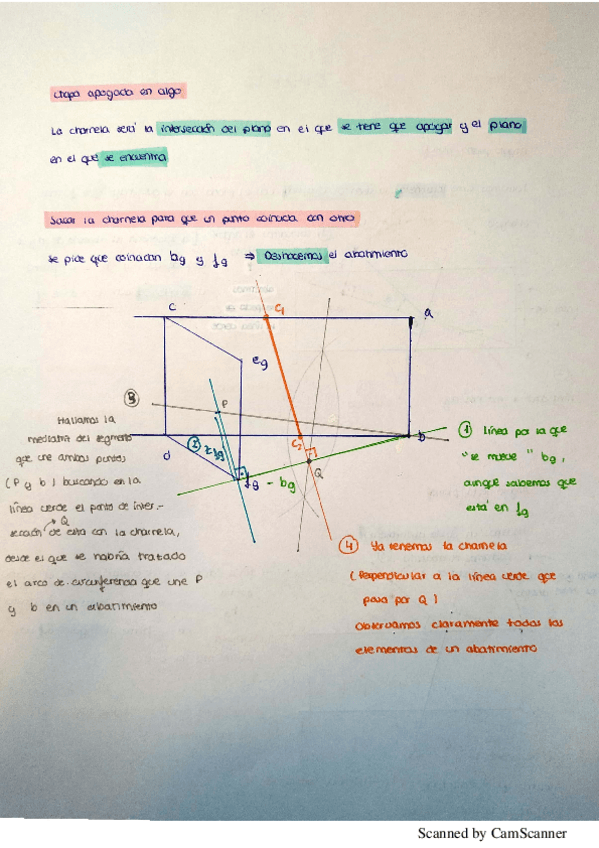 etapa apoyada en algo
La charnela será la intersección del plano en el que se tiene que apoyar y el plano
en el que se encuentra
Sacar la charnela para que un punto coincida con otro
Se pide que coincidan bg y fg ⇒ Deshacemos el abatimiento
c
C1
a
eg
③
P
Hallamos la
mediatriz del segmento
que une ambos puntos
(P y b) buscando en la
línea verde el punto de inter-
Q
sección de esta con la charnela,
desde el que se habría trazado
el arco de circunferencia que une P
y b en un abatimiento
d
②
zfg
C2
b
Q
fg - bg
① línea por la que
"se mueve" bg,
aunque sabemos que
está en fg
④ Ya tenemos la charnela
(Perpendicular a la línea verde que
pasa por Q)
Observamos claramente todos los
elementos de un abatimiento
Scanned by CamScanner